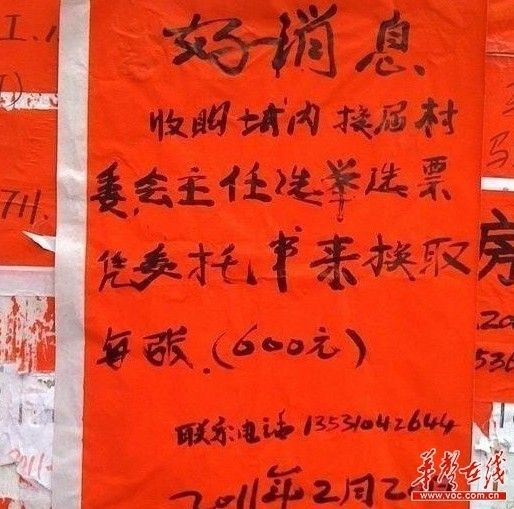 好消息
收购城内换届村
委会主任选举选票
凭委托书来换取
每张.(600元)
联系电话13531042644
2011年2月2
工.
711.
马
房
200
536
2011
华声在线
www.voc.com.cn